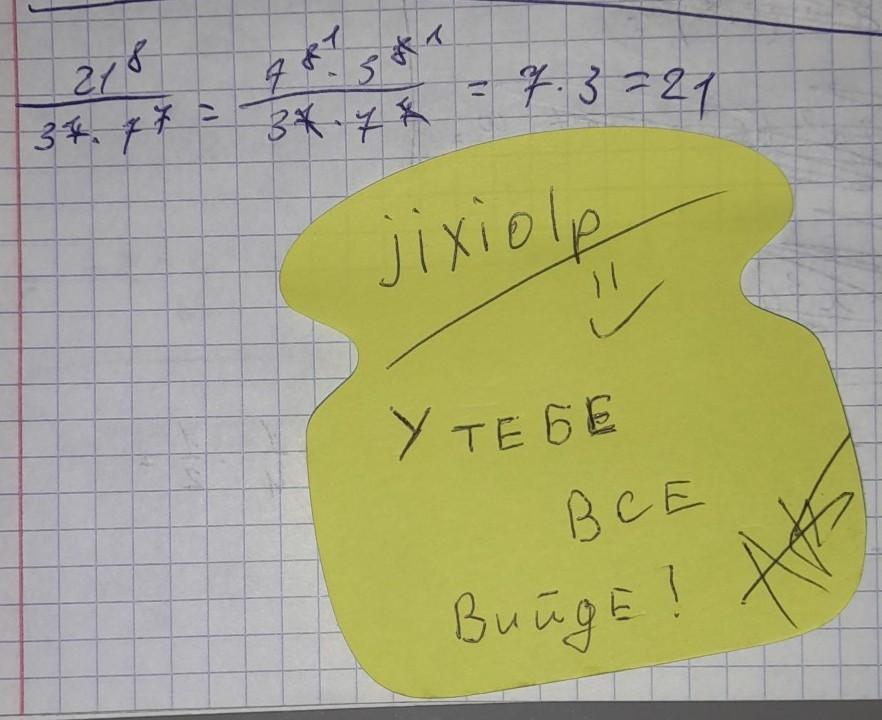 21⁸ / 3⁷ · 7⁷ = 7⁸¹ · 3⁸¹ / 3⁷ · 7⁷ = 7 · 3 = 21
jixiolp
У ТЕБЕ
ВСЕ
Вийде!